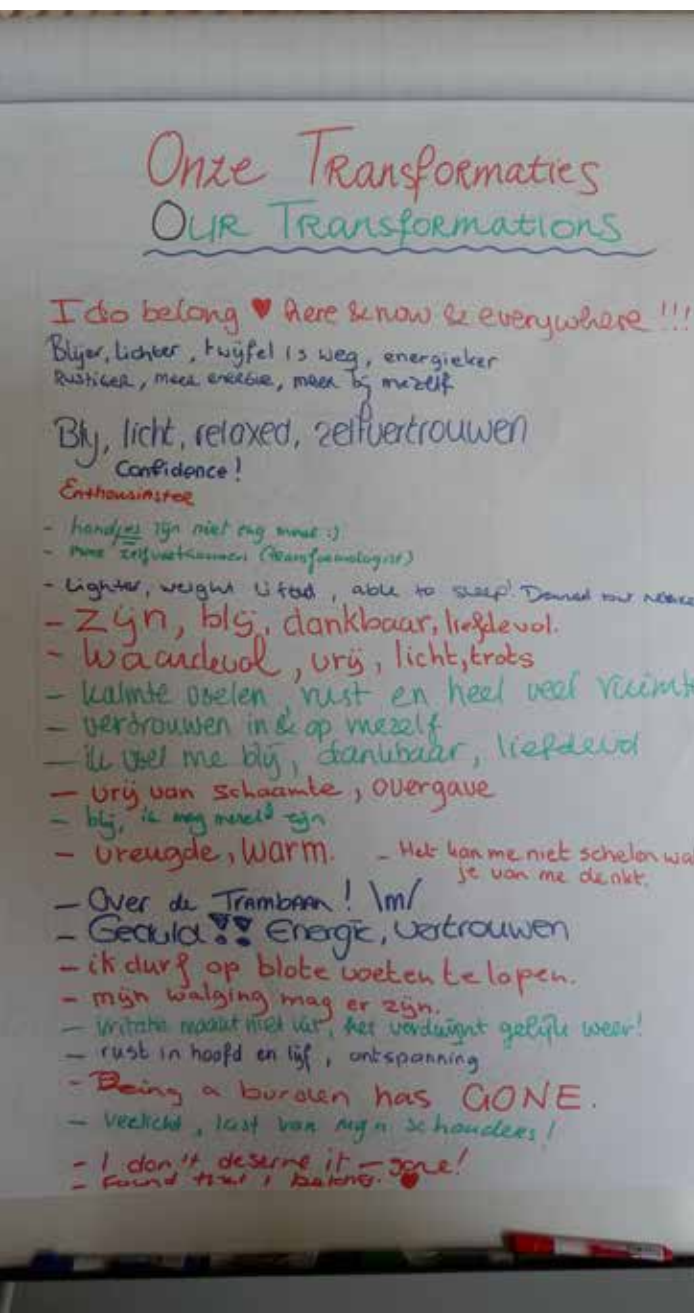 Onze Transformaties
Our Transformations
I do belong ♥ here & now & everywhere !!!
Blijer, lichter, twijfel is weg, energieker
Rustiger, meer energie, meer bij mezelf
Blij, licht, relaxed, zelfvertrouwen
Confidence!
Enthousiaster
- handjes zijn niet eng meer :)
- meer zelfvertrouwen (transformologist)
- Lighter, weight lifted, able to sleep!
- Zijn, blij, dankbaar, liefdevol.
- Waardevol, vrij, licht, trots
- kalmte voelen, rust en heel veel ruimte
- vertrouwen in & op mezelf
- ik voel me blij, dankbaar, liefdevol
- vrij van schaamte, overgave
- blij, ik mag mezelf zijn
- vreugde, warm.
- Het kan me niet schelen wat
je van me denkt.
- Over de Trambaan! \m/
- Geduld!! Energie, vertrouwen
- ik durf op blote voeten te lopen.
- mijn walging mag er zijn.
- irritatie maakt niet uit, het verdwijnt gelijk weer!
- rust in hoofd en lijf, ontspanning
- Being a burden has GONE.
- verlicht, last van mijn schouders!
- I don't deserve it - gone!
- Found that I belong. ♥